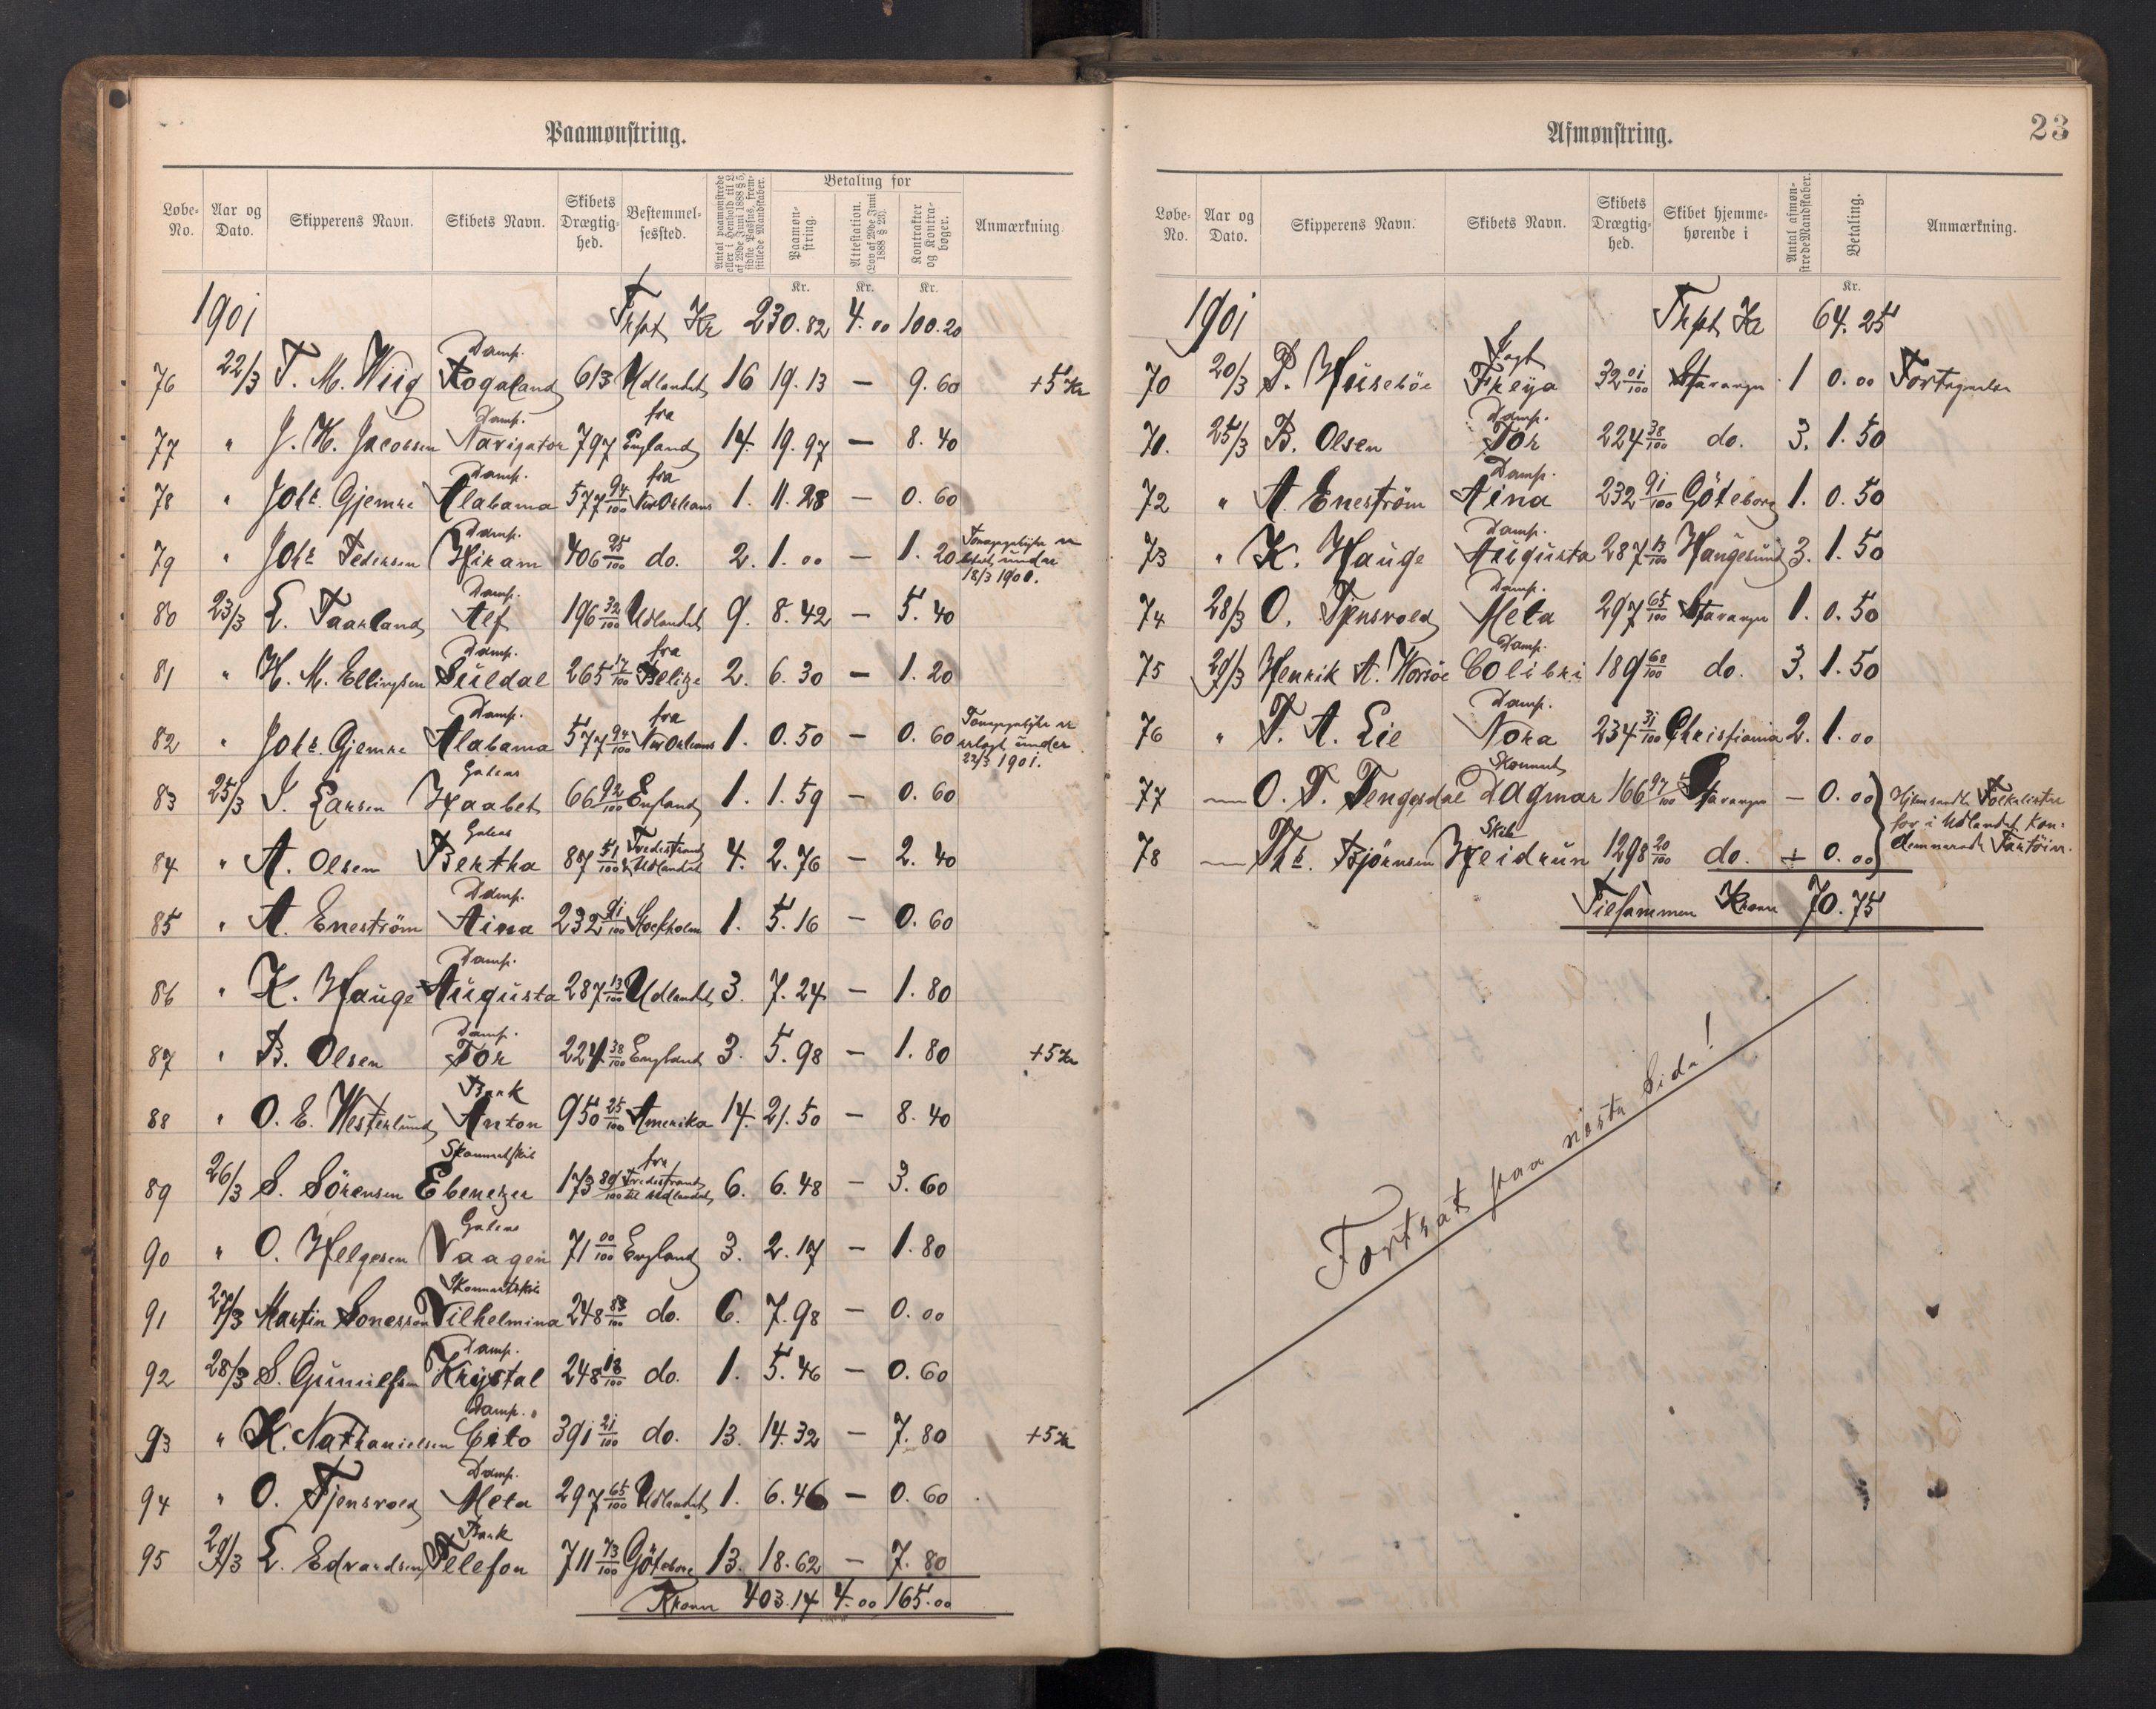 Paamønstring.
Løbe-No. Aar og Dato. Skipperens Navn. Skibets Navn. Skibets Drægtighed. Bestemmelsessted. Antal paamønstrede eller i Henhold til L. af 29de Juni 1888 § 5, sidste Passus, fremstillede Mandskaber. Betaling for Paamønstring. Attestation. (Lov af 29de Juni 1888 § 23). Kontrakter og Kontrabøger. Anmærkning.
Kr. Kr. Kr.
1901 Trpt Kr 230.82 4.00 100.20
76 22/3 T. M. Wiig Damp. Rogaland 613 Udlandet 16 19.13 — 9.60 +5 Kr
77 " J. H. Jacobsen Damp. Navigator 797 fra England 14. 19.97 — 8.40
78 " Johs. Gjemre Damp. Alabama 577 94/100 fra New Orleans 1. 11.28 — 0.60
79 " Johs. Pedersen Damp. Hiram 406 25/100 do. 2. 1.00 — 1.20 under 18/3 1901.
80 23/3 L. Taarland Damp. Alf 196 32/100 Udlandet 9. 8.42 — 5.40
81 " H. M. Ellingsen Damp. Suldal 265 17/100 fra Belize 2. 6.30 — 1.20
82 " Johs. Gjemre Damp. Alabama 577 94/100 fra New Orleans 1. 0.50 — 0.60 erlagt under 22/3 1901.
83 25/3 I. Larsen Galeas Haabet 66 92/100 England 1. 1.59 — 0.60
84 " A. Olsen Galeas Bertha 87 51/100 Fredrikstad & Udlandet 4. 2.76 — 2.40
85 " A. Eneström Damp. Aina 232 91/100 Stockholm 1. 5.16 — 0.60
86 " K. Hauge Damp. Augusta 287 13/100 Udlandet 3. 7.24 — 1.80
87 " B. Olsen Damp. Tor 224 38/100 England 3. 5.98 — 1.80 +5 Kr
88 " O. E. Westerlund Bark Anton 950 25/100 Amerika 14. 21.50 — 8.40
89 26/3 S. Sörensen Skonnertskib Ebenezer 173 89/100 fra til Udlandet 6. 6.48 — 3.60
90 " O. Helgesen Galeas Vaagen 71 00/100 England 3. 2.17 — 1.80
91 27/3 Martin Sonesson Skonnertskib Vilhelmina 248 83/100 do. 6. 7.98 — 0.00
92 28/3 S. Gunnulfsen Damp. Krystal 248 18/100 do. 1. 5.46 — 0.60
93 " K. Nathanielsen Damp. Cito 391 21/100 do. 13. 14.32 — 7.80 +5 Kr
94 " O. Tjensvold Damp. Meta 297 65/100 Udlandet 1. 6.46 — 0.60
95 29/3 L. Edvardsen Bark Ellefon 711 73/100 Göteborg 13. 18.62 — 7.80
Kroner 403.14 4.00 165.00
Afmønstring. 23
Løbe-No. Aar og Dato. Skipperens Navn. Skibets Navn. Skibets Drægtighed. Skibet hjemmehørende i Antal afmønstrede Mandskaber. Betaling. Anmærkning.
Kr.
1901 Trpt Kr 64.25
70 20/3 P. Huseböe Jagt Freya 32 01/100 Stavanger 1 0.00
70. 25/3 B. Olsen Damp. Tor 224 38/100 do. 3. 1.50
72 " A. Eneström Damp. Aina 232 91/100 Göteborg 1. 0.50
73 " K. Hauge Damp. Augusta 287 13/100 Haugesund 3. 1.50
74 28/3 O. Tjensvold Damp. Meta 297 65/100 Stavanger 1. 0.50
75 29/3 Henrik A. Worsöe Damp. Colibri 189 68/100 do. 3. 1.50
76 " T. A. Lie Damp. Nora 234 31/100 Christiania 2. 1.00
77 — O. T. Tengesdal Skonnert Dagmar 166 97/100 Stavanger — 0.00 Hjemsendte Folkelister
for i Udlandet kon-
demnerede Fartöier.
78 — Ths. Björnsen Skib Heidrun 1298 20/100 do. — 0.00
Tilsammen Kroner 70.75
Fortsat paa næste Side!